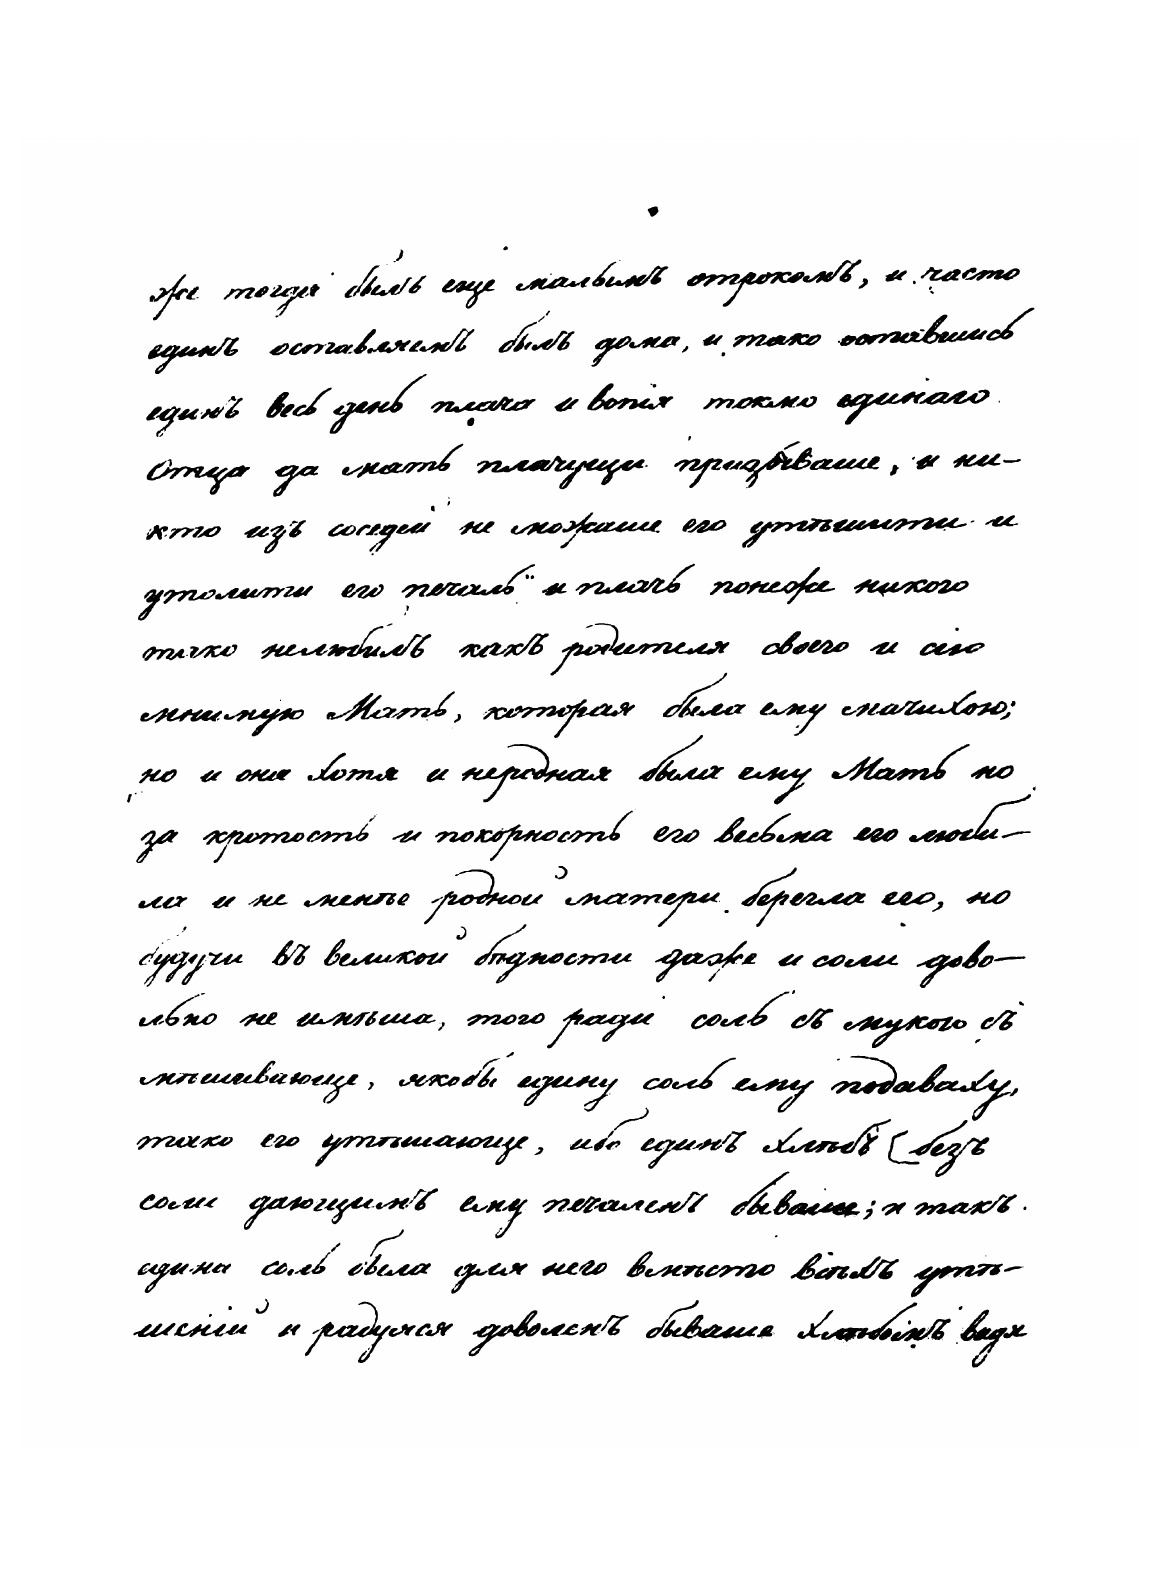 же тогда былъ еще малымъ отрокомъ, и часто
единъ оставляемъ былъ дома, и тако оставшись
единъ весь день плача и вопія токмо единаго
Отца да мать плачущи призываше, и ни-
кто изъ соседей не можаше его утѣшити и
утолити его печаль и плачъ понеже никого
тако нелюбилъ какъ родителя своего и сію
мнимую Мать, которая была ему мачихою;
но и она хотя и неродная была ему Мать но
за кротость и покорность его весьма его люби-
ла и не менѣе родной матери берегла его, но
будучи въ великой бѣдности даже и соли дово-
льно не имѣша, того ради соль съ мукою съ
мѣшивающе, якобы едину соль ему подаваху,
тако его утѣшающе, ибо единъ хлѣбъ (безъ
соли дающимъ ему печаленъ бываше; и такъ
едина соль была для него вмѣсто всѣхъ утѣ-
шеній и радуяся доволенъ бываше хлѣбомъ видя